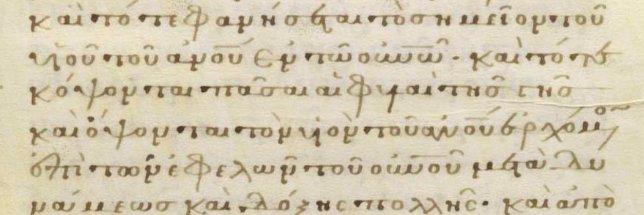 καὶ τότε φανήσεται τὸ σημεῖον τοῦ
υἱοῦ τοῦ ἀνοῦ ἐν τῶ οὐνῶ· καὶ τότε
κόψονται πᾶσαι αἱ φυλαὶ τῆς γῆς
καὶ ὄψονται τὸν υἱὸν τοῦ ἀνοῦ ἐρχόμον
ἐπὶ τῶν νεφελῶν τοῦ οὐνοῦ μετὰ δυ
νάμεως καὶ δόξης πολλῆς· καὶ ἀπο